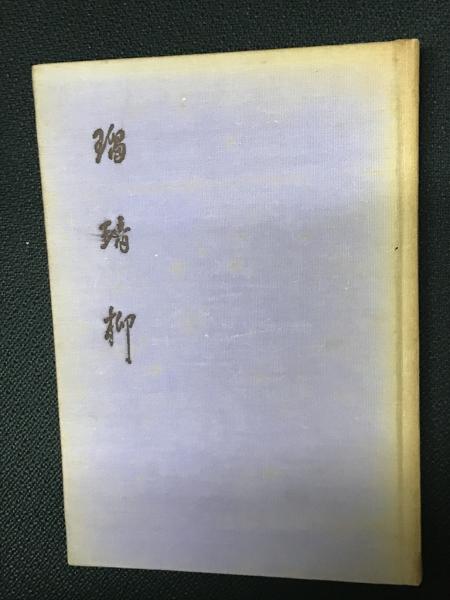 瑠璃柳